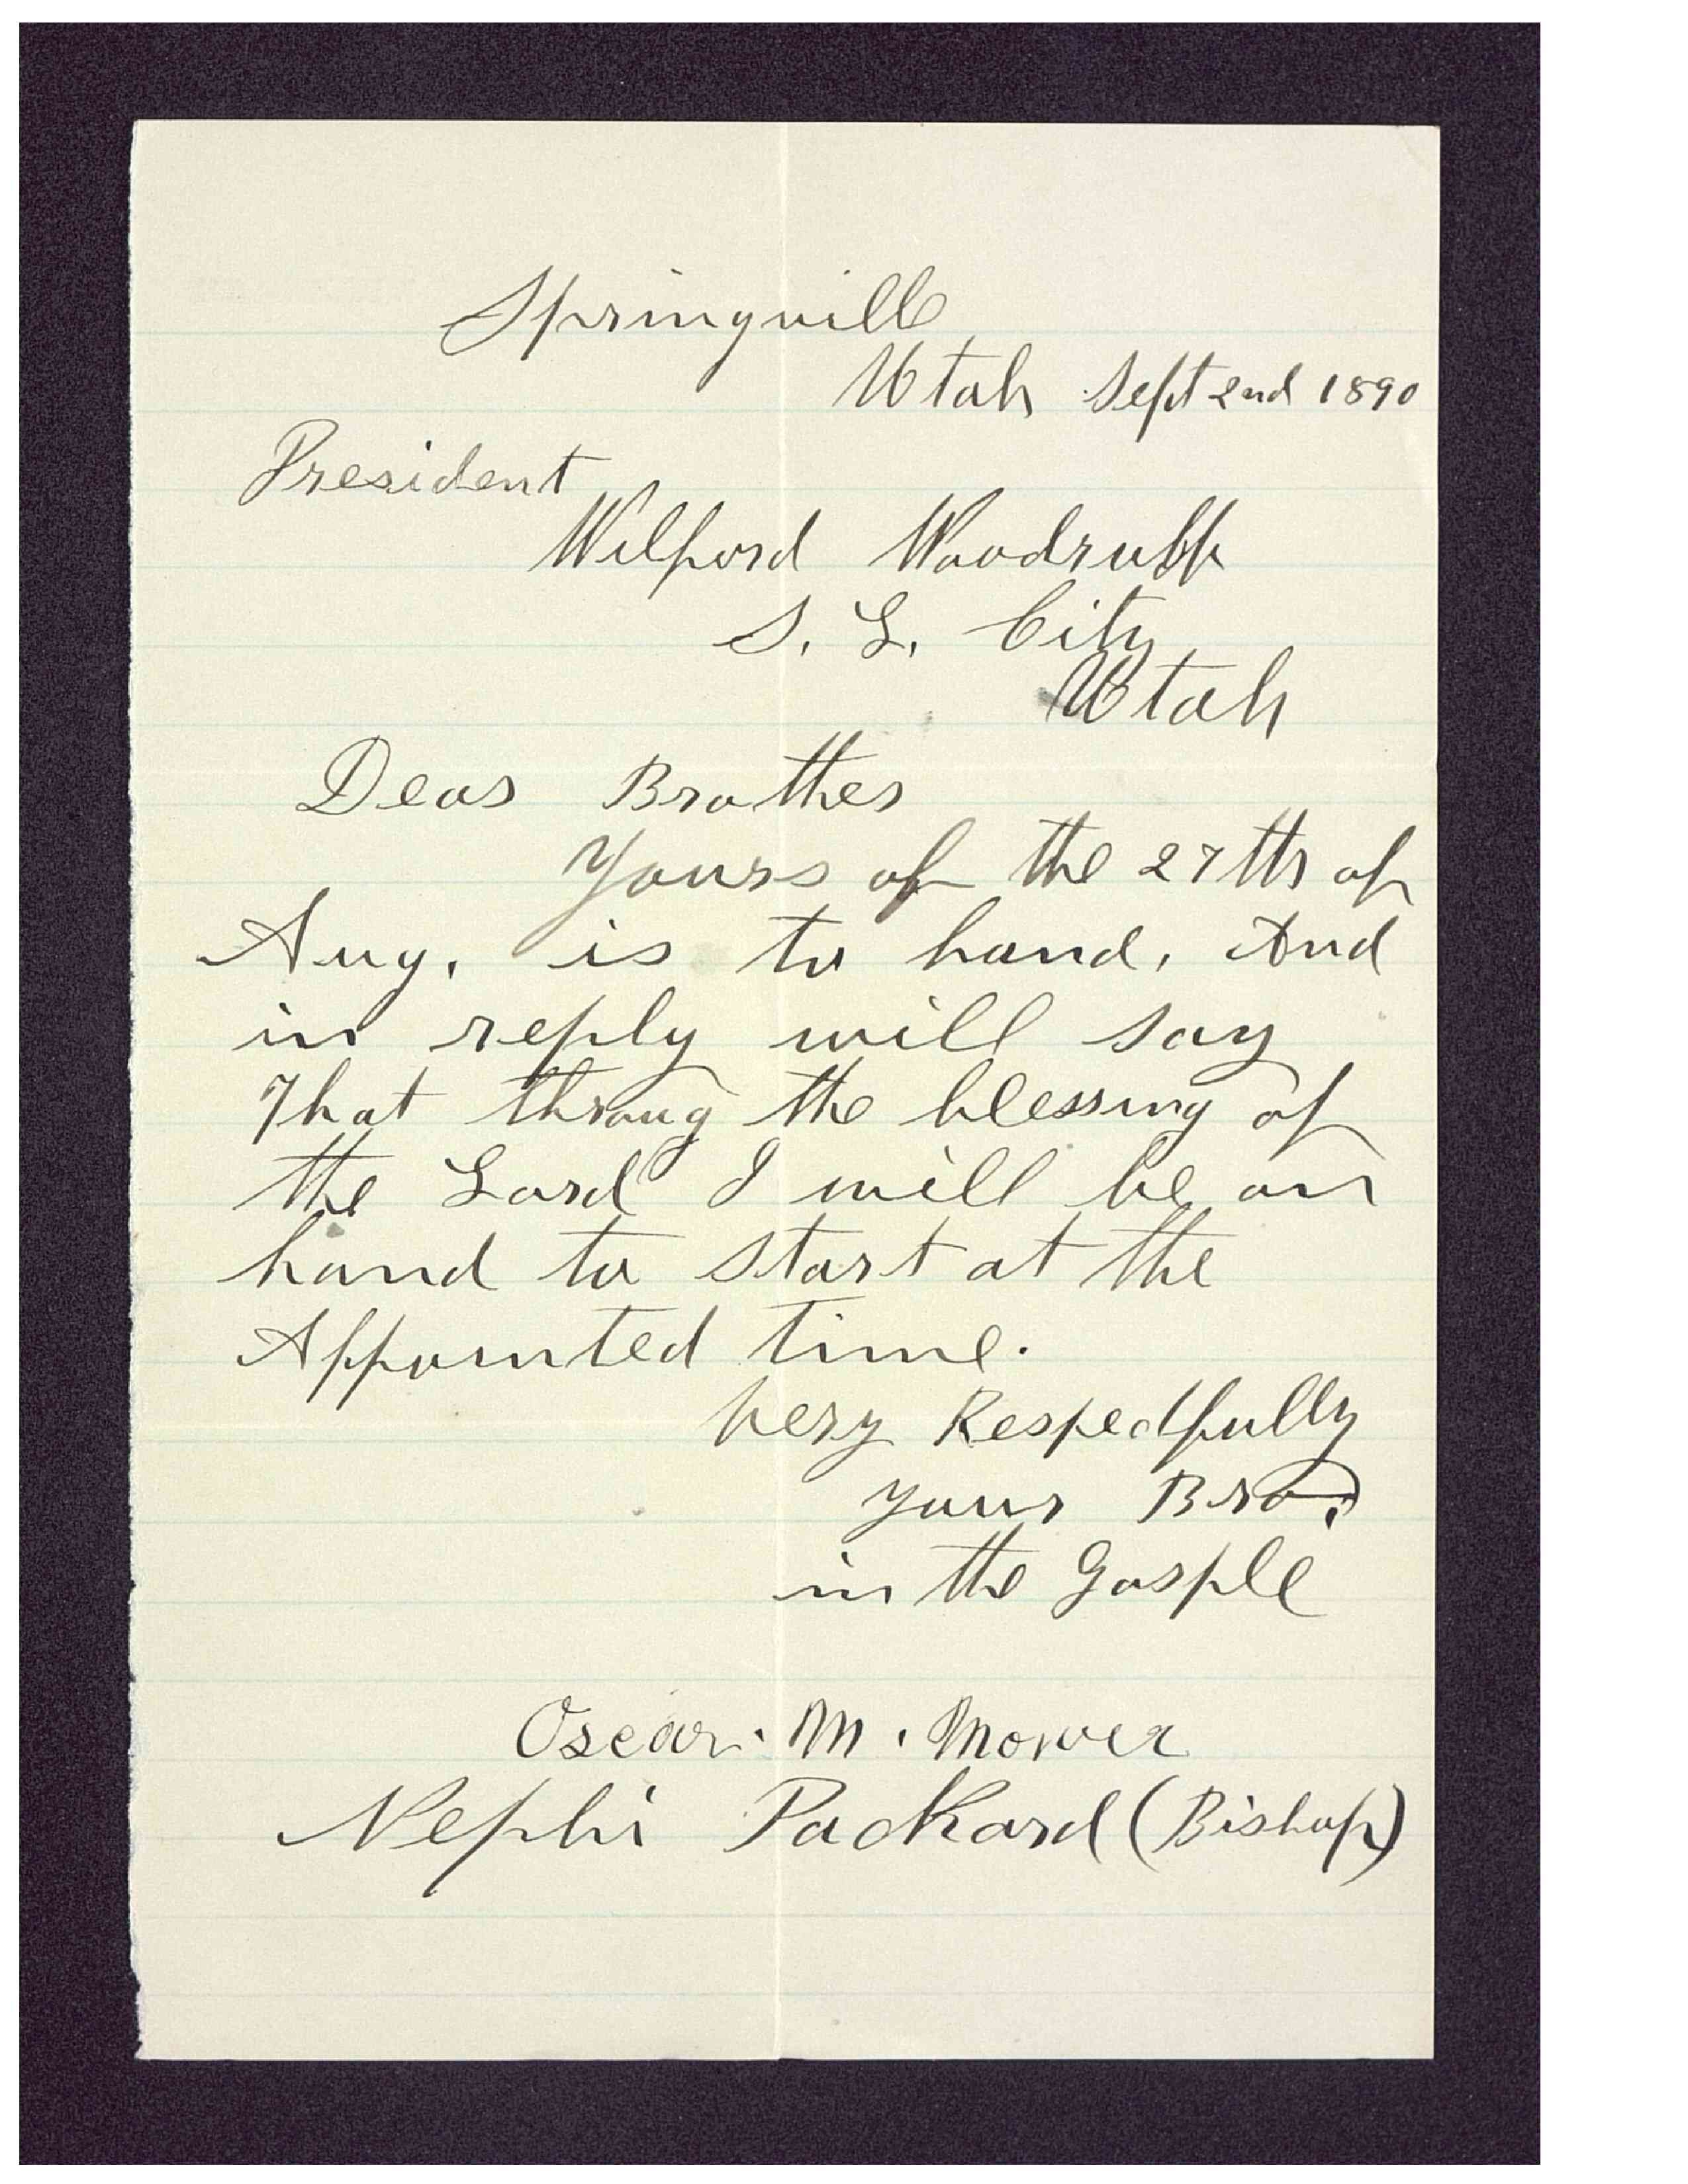 Springville
Utah Sept 2nd 1890
President
Wilford Woodruff
S. L. City
Utah
Dear Brother
Yours of the 27th of
Aug. is to hand, And
in reply will say
That throug the blessing of
the Lord I will be on
hand to start at the
Appointed time.
Very Respectfully
your Bro.
in the Gosple
Oscar. M. Mower
Nephi Packard (Bishop)